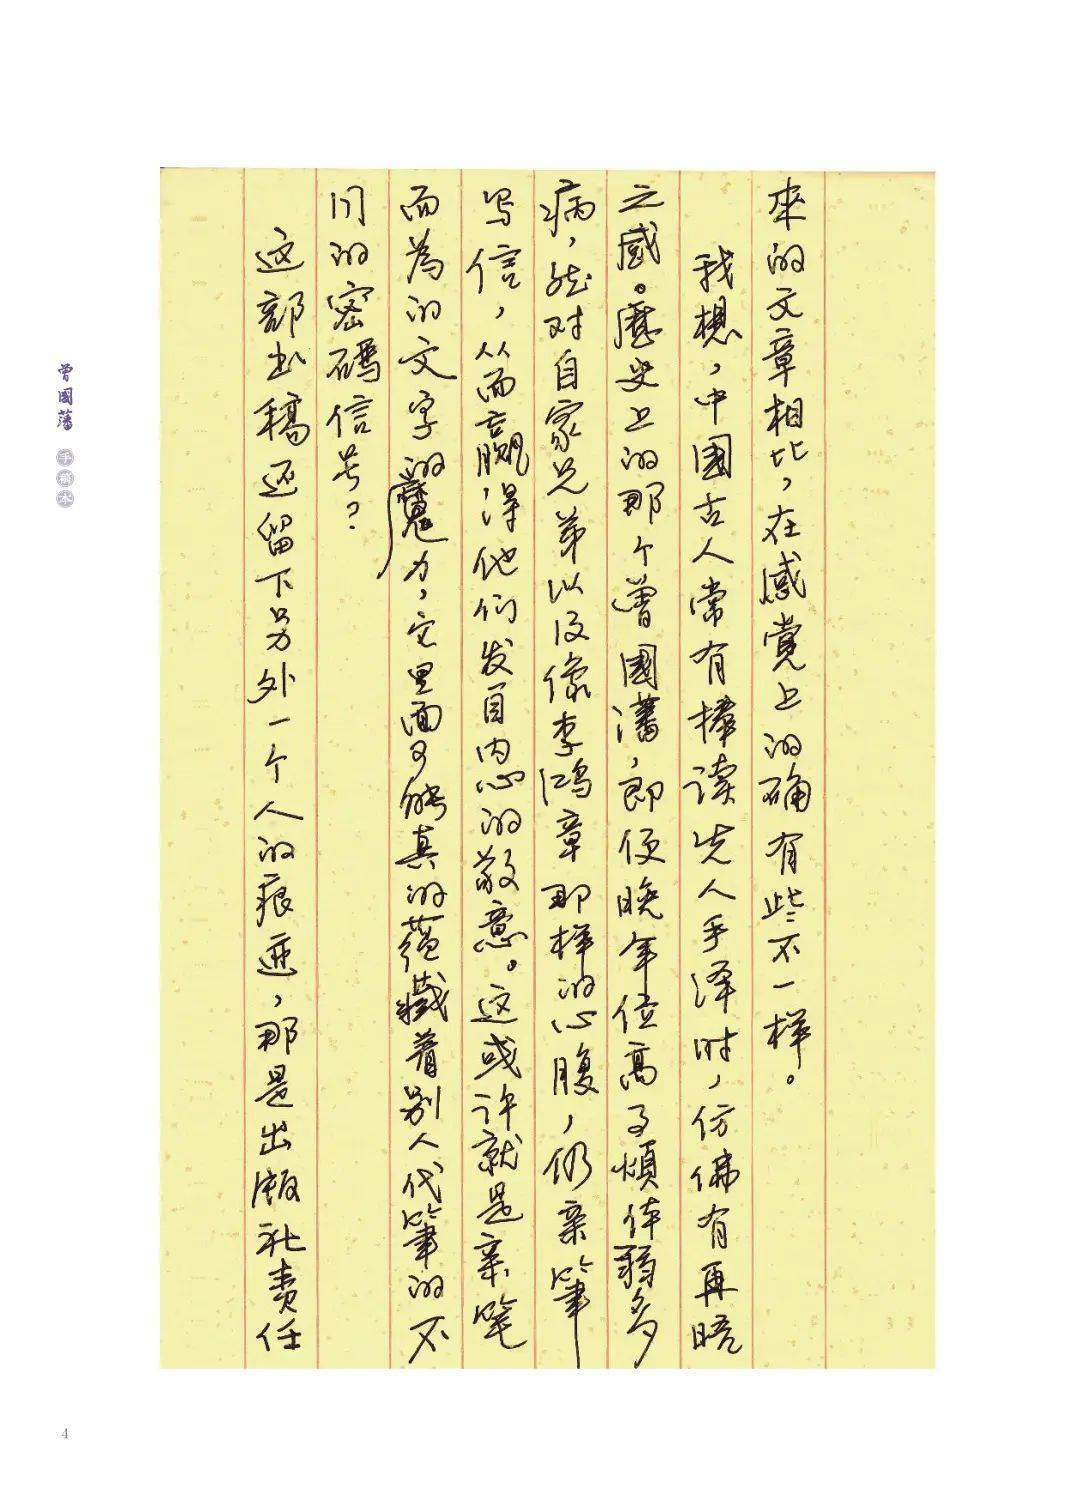 来的文章相比，在感觉上的确有些不一样。
我想，中國古人常有捧读先人手泽时，仿佛有再晤
之感。歷史上的那个曾國藩，即便晚年位高事烦体弱多
病，然对自家兄弟以及像李鸿章那样的心腹，仍亲筆
写信，从而赢得他们发自内心的敬意。这或许就是亲笔
而為的文字的魔力，它里面可能真的蕴藏着别人代筆的不
同的密码信号？
这部书稿还留下另外一个人的痕迹，那是出版社责任
曾國藩 手稿本
4